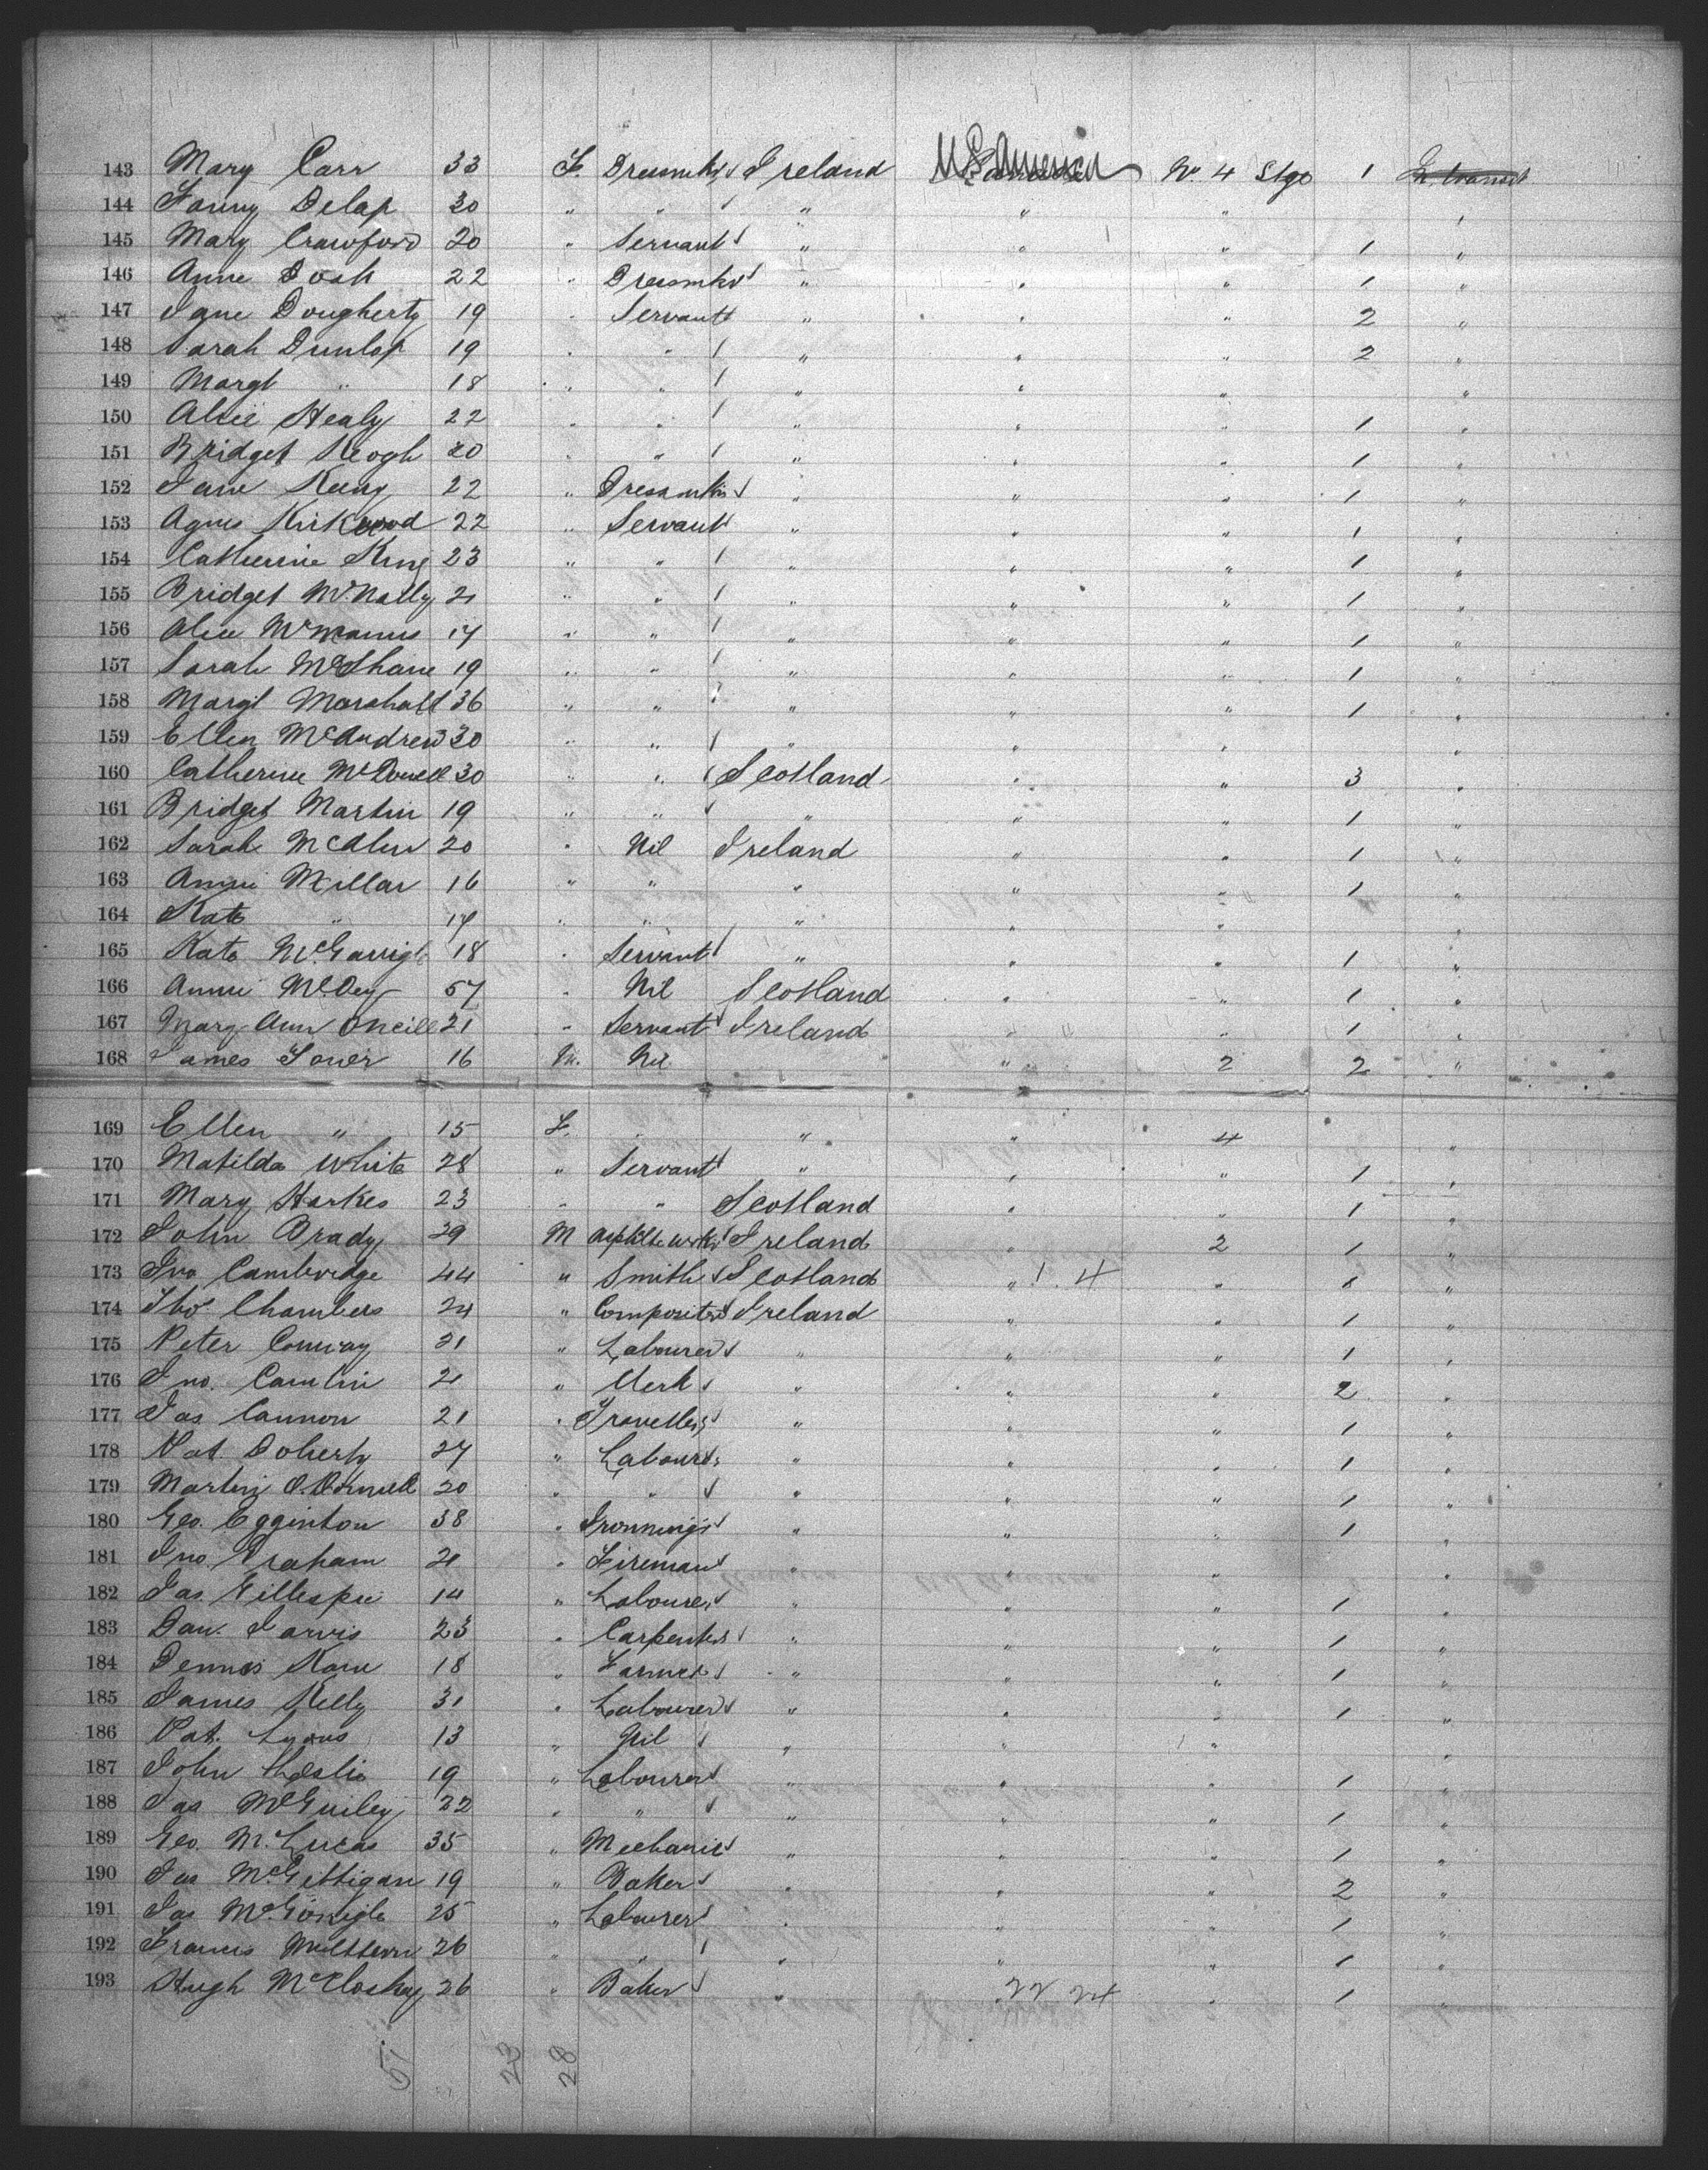 143 Mary Carr 33 F. Dressmkr Ireland U.S. America No. 4 Stge 1 In transit
144 Fanny Delap 30 " " " " "
145 Mary Crawford 20 " Servant " " " 1 "
146 Anne Dosh 22 " Dressmkr " " " 1 "
147 Jane Dougherty 19 " Servant " " " 2 "
148 Sarah Dunlop 19 " " " " " 2 "
149 Margt " 18 " " " " " "
150 Alice Healy 22 " " " " " 1 "
151 Bridget Keogh 20 " " " " " 1 "
152 Jane 22 " Dressmkr " " " 1 "
153 Agnes Kirkwood 22 " Servant " " " 1 "
154 Catherine King 23 " " " " " 1 "
155 Bridget McNally 21 " " " " " 1 "
156 Alice McManus 17 " " " " " 1 "
157 Sarah McShane 19 " " " " " 1 "
158 Margt Marshall 36 " " " " " 1 "
159 Ellen McAndrew 30 " " " " " "
160 Catherine McDowell 30 " " Scotland " " 3 "
161 Bridget Martin 19 " " " " " 1 "
162 Sarah 20 " Nil Ireland " " 1 "
163 Annie Millar 16 " " " " " 1 "
164 Kate " 14 " " " " " "
165 Kate McGarrigle 18 " Servant " " " 1 "
166 Annie 57 " Nil Scotland " " 1 "
167 Mary Ann ONeill 21 " Servant Ireland " " 1 "
168 James 16 M. Nil " 2 2 "
169 Ellen " 15 F. " " " 4 "
170 Matilda White 28 " Servant " " " 1 "
171 Mary Harkes 23 " " Scotland " " 1 "
172 John Brady 29 M Ireland " 2 1 "
173 Jno Cambridge 44 " Smith Scotland " 1.4 " 1 "
174 Thos Chambers 24 " Compositor Ireland " " 1 "
175 Peter Conway 21 " Labourer " " " 1 "
176 Jno. Camlin 21 " Clerk " " " 2 "
177 Jas Cannon 21 " Traveller " " " 1 "
178 Pat Doherty 27 " Labourer " " " 1 "
179 Martin O.Donnell 20 " " " " " 1 "
180 Geo. Egginton 38 " Ironmong'r " " " 1 "
181 Jno. Graham 21 " Fireman " " " "
182 Jas Gillespie 14 " Labourer " " " 1 "
183 Dav. Jarvis 23 " Carpenter " " " 1 "
184 Dennis Kane 18 " Farmer " " " 1 "
185 James Kelly 31 " Labourer " " " 1 "
186 Pat. Lyons 13 " Nil " " " "
187 John Leslie 19 " Labourer " " " 1 "
188 Jas 22 " " " " " 1 "
189 Geo. McLucas 35 " Mechanic " " " 1 "
190 Jas McGettigan 19 " Baker " " " 2 "
191 Jas McGonigle 25 " Labourer " " " 1 "
192 Francis 26 " " " " " 1 "
193 Hugh McCloskey 26 " Baker " 22 24 " 1 "
51 23 28